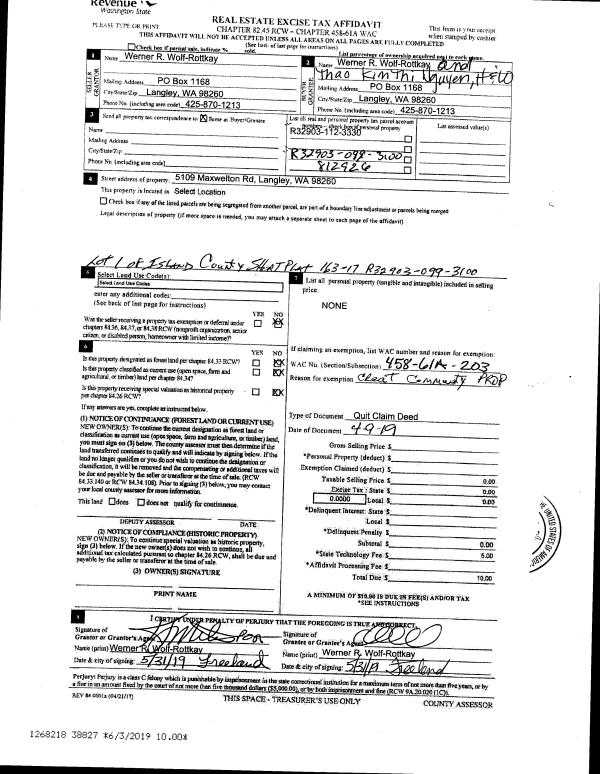 Revenue
Washington State
PLEASE TYPE OR PRINT
REAL ESTATE EXCISE TAX AFFIDAVIT
CHAPTER 82.45 RCW – CHAPTER 458-61A WAC
This form is your receipt
when stamped by cashier
THIS AFFIDAVIT WILL NOT BE ACCEPTED UNLESS ALL AREAS ON ALL PAGES ARE FULLY COMPLETED
(See back of last page for instructions)
Check box if partial sale, indicate %
sold.
List percentage of ownership acquired next to each name.
1
Name Werner R. Wolf-Rottkay
SELLER
GRANTOR
Mailing Address PO Box 1168
City/State/Zip Langley, WA 98260
Phone No. (including area code) 425-870-1213
2
Name Werner R. Wolf-Rottkay and
Thao Kim Thi Nguyen, H&W
BUYER
GRANTEE
Mailing Address PO Box 1168
City/State/Zip Langley, WA 98260
Phone No. (including area code) 425-870-1213
3
Send all property tax correspondence to: Same as Buyer/Grantee
Name
Mailing Address
City/State/Zip
Phone No. (including area code)
List all real and personal property tax parcel account
numbers – check box if personal property
List assessed value(s)
R32903-112-3330
R32903-098-3100
812926
4
Street address of property: 5109 Maxwelton Rd, Langley, WA 98260
This property is located in Select Location
Check box if any of the listed parcels are being segregated from another parcel, are part of a boundary line adjustment or parcels being merged
Legal description of property (if more space is needed, you may attach a separate sheet to each page of the affidavit)
Lot 1 of Island County Short Plat 163-17 R32903-099-3100
5
Select Land Use Code(s):
Select Land Use Codes
enter any additional codes:
(See back of last page for instructions)
YES NO
Was the seller receiving a property tax exemption or deferral under
chapters 84.36, 84.37, or 84.38 RCW (nonprofit organization, senior
citizen, or disabled person, homeowner with limited income)?
6
YES NO
Is this property designated as forest land per chapter 84.33 RCW?
Is this property classified as current use (open space, farm and
agricultural, or timber) land per chapter 84.34?
Is this property receiving special valuation as historical property
per chapter 84.26 RCW?
If any answers are yes, complete as instructed below.
(1) NOTICE OF CONTINUANCE (FOREST LAND OR CURRENT USE)
NEW OWNER(S): To continue the current designation as forest land or
classification as current use (open space, farm and agriculture, or timber) land,
you must sign on (3) below. The county assessor must then determine if the
land transferred continues to qualify and will indicate by signing below. If the
land no longer qualifies or you do not wish to continue the designation or
classification, it will be removed and the compensating or additional taxes will
be due and payable by the seller or transferor at the time of sale. (RCW
84.33.140 or RCW 84.34.108). Prior to signing (3) below, you may contact
your local county assessor for more information.
This land does does not qualify for continuance.
DEPUTY ASSESSOR DATE
(2) NOTICE OF COMPLIANCE (HISTORIC PROPERTY)
NEW OWNER(S): To continue special valuation as historic property,
sign (3) below. If the new owner(s) does not wish to continue, all
additional tax calculated pursuant to chapter 84.26 RCW, shall be due and
payable by the seller or transferor at the time of sale.
(3) OWNER(S) SIGNATURE
PRINT NAME
7
List all personal property (tangible and intangible) included in selling
price.
NONE
If claiming an exemption, list WAC number and reason for exemption:
WAC No. (Section/Subsection) 458-61A-203
Reason for exemption Create Community Prop
Type of Document Quit Claim Deed
Date of Document 4-9-19
Gross Selling Price $
*Personal Property (deduct) $
Exemption Claimed (deduct) $
Taxable Selling Price $ 0.00
Excise Tax : State $ 0.00
0.0000 Local $ 0.00
*Delinquent Interest: State $
Local $
*Delinquent Penalty $
Subtotal $ 0.00
*State Technology Fee $ 5.00
*Affidavit Processing Fee $
Total Due $ 10.00
A MINIMUM OF $10.00 IS DUE IN FEE(S) AND/OR TAX
*SEE INSTRUCTIONS
UNITED STATES OF AMERI
8
I CERTIFY UNDER PENALTY OF PERJURY THAT THE FOREGOING IS TRUE AND CORRECT.
Signature of
Grantor or Grantor's Agent
Name (print) Werner R. Wolf-Rottkay
Date & city of signing: 5/31/19 Freeland
Signature of
Grantee or Grantee's Agent
Name (print) Werner R. Wolf-Rottkay
Date & city of signing: 5/31/19 Freeland
Perjury: Perjury is a class C felony which is punishable by imprisonment in the state correctional institution for a maximum term of not more than five years, or by
a fine in an amount fixed by the court of not more than five thousand dollars ($5,000.00), or by both imprisonment and fine (RCW 9A.20.020 (1C)).
REV 84 0001a (04/21/17)
THIS SPACE - TREASURER'S USE ONLY
COUNTY ASSESSOR
1268218 38827 *6/3/2019 10.00*